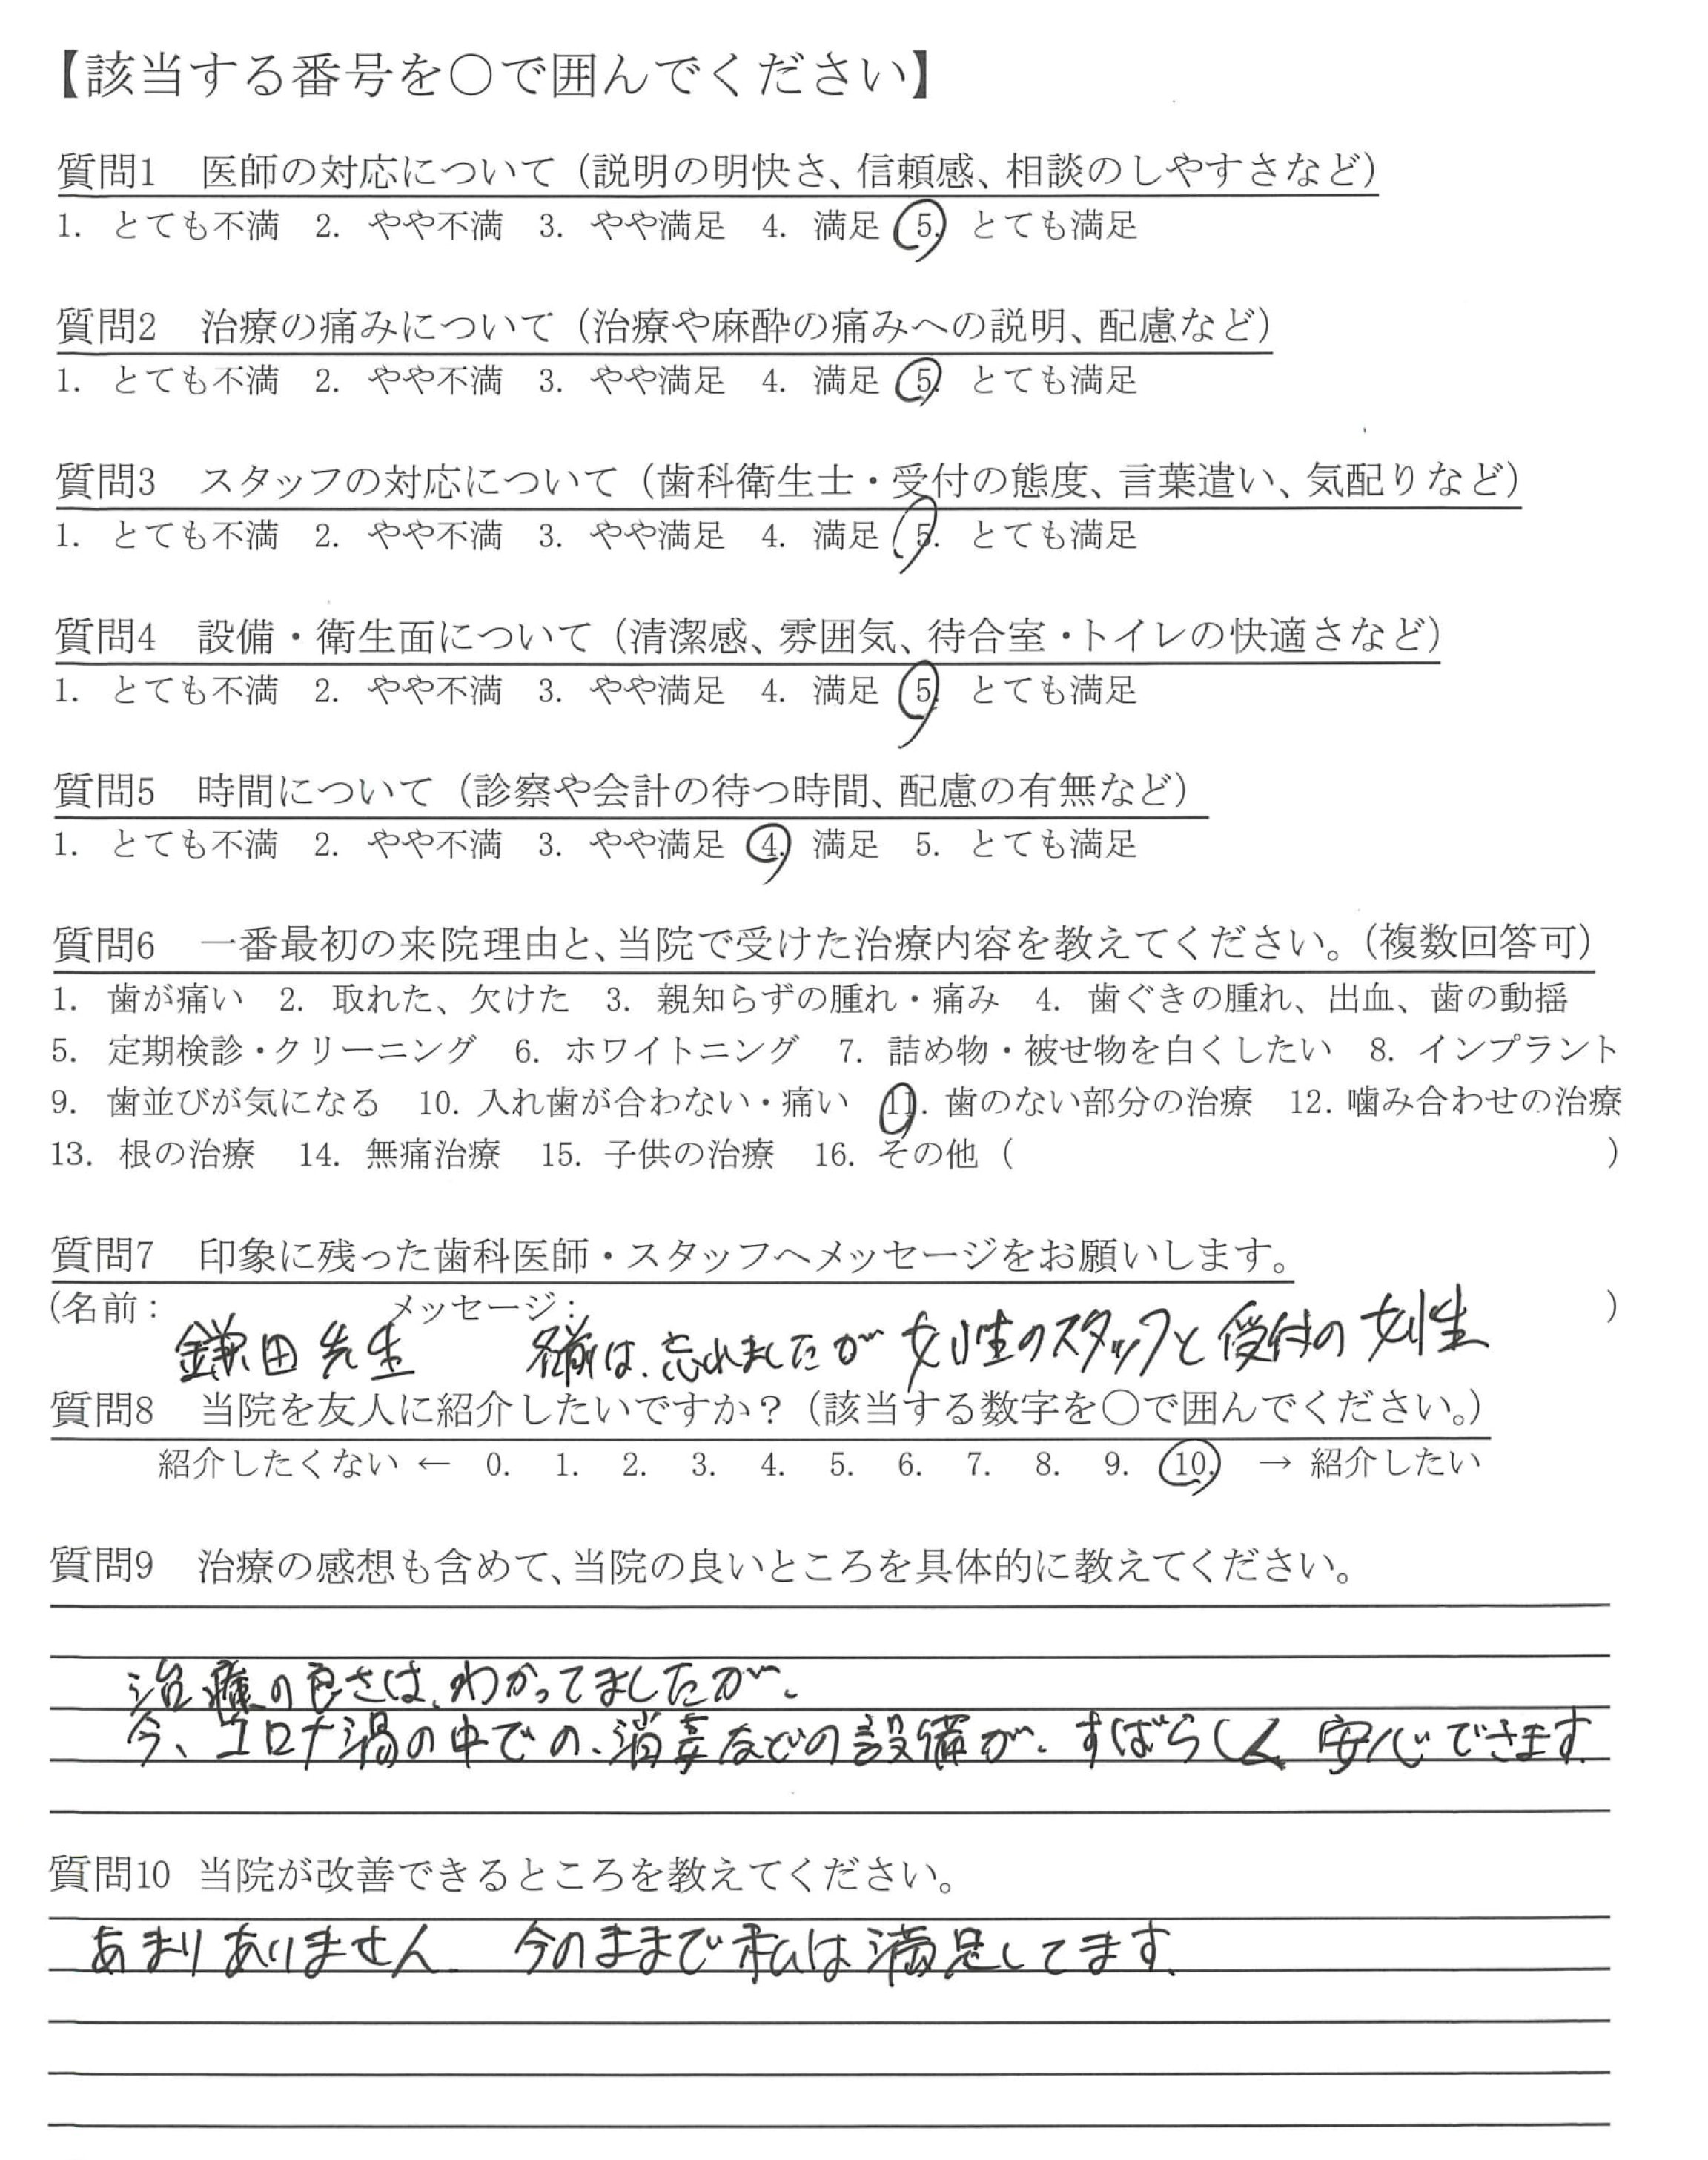 【該当する番号を○で囲んでください】
質問1　医師の対応について（説明の明快さ、信頼感、相談のしやすさなど）
1. とても不満　2. やや不満　3. やや満足　4. 満足　5. とても満足
質問2　治療の痛みについて（治療や麻酔の痛みへの説明、配慮など）
1. とても不満　2. やや不満　3. やや満足　4. 満足　5. とても満足
質問3　スタッフの対応について（歯科衛生士・受付の態度、言葉遣い、気配りなど）
1. とても不満　2. やや不満　3. やや満足　4. 満足　5. とても満足
質問4　設備・衛生面について（清潔感、雰囲気、待合室・トイレの快適さなど）
1. とても不満　2. やや不満　3. やや満足　4. 満足　5. とても満足
質問5　時間について（診察や会計の待つ時間、配慮の有無など）
1. とても不満　2. やや不満　3. やや満足　4. 満足　5. とても満足
質問6　一番最初の来院理由と、当院で受けた治療内容を教えてください。（複数回答可）
1. 歯が痛い　2. 取れた、欠けた　3. 親知らずの腫れ・痛み　4. 歯ぐきの腫れ、出血、歯の動揺
5. 定期検診・クリーニング　6. ホワイトニング　7. 詰め物・被せ物を白くしたい　8. インプラント
9. 歯並びが気になる　10. 入れ歯が合わない・痛い　11. 歯のない部分の治療　12. 噛み合わせの治療
13. 根の治療　14. 無痛治療　15. 子供の治療　16. その他（　　　）
質問7　印象に残った歯科医師・スタッフへメッセージをお願いします。
（名前：　　　メッセージ：　　　）
鎌田先生　名前は、忘れましたが 女性のスタッフと受付の女性
質問8　当院を友人に紹介したいですか？（該当する数字を○で囲んでください。）
紹介したくない ← 0. 1. 2. 3. 4. 5. 6. 7. 8. 9. 10. → 紹介したい
質問9　治療の感想も含めて、当院の良いところを具体的に教えてください。
治療の良さは、わかってましたが、
今、コロナ渦の中での、消毒などの設備が、すばらしく 安心できます.
質問10　当院が改善できるところを教えてください。
あまりありません. 今のままで私は満足してます.